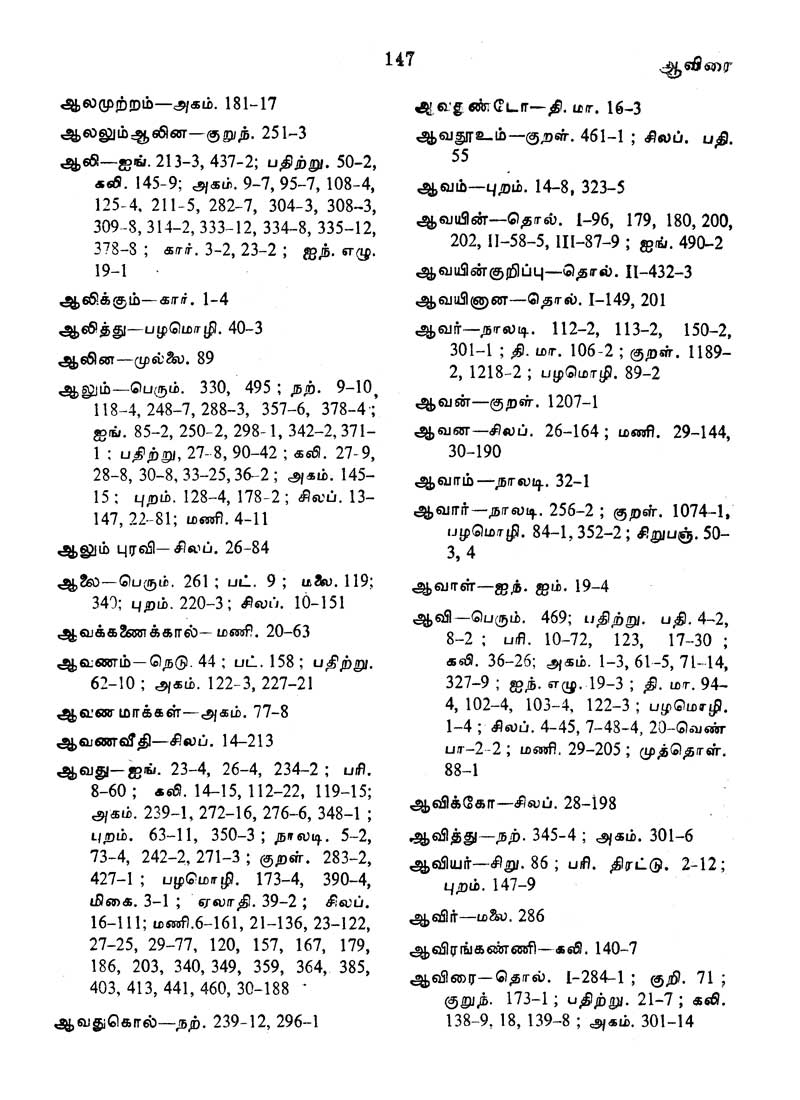 147
ஆவிரை
ஆலமுற்றம்—அகம். 181–17
ஆலலும்ஆலின—குறுந். 251–3
ஆலி—ஐங். 213–3, 437–2; பதிற்று. 50–2,
கலி. 145–9; அகம். 9–7, 95–7, 108–4,
125–4, 211–5, 282–7, 304–3, 308–3,
309–8, 314–2, 333–12, 334–8, 335–12,
378–8 ; கார். 3–2, 23–2 ; ஐந். எழு.
19–1
ஆலிக்கும்—கார். 1–4
ஆலித்து—பழமொழி. 40–3
ஆலின—முல்லை. 89
ஆலும்—பெரும். 330, 495 ; நற். 9–10,
118–4, 248–7, 288–3, 357–6, 378–4 ;
ஐங். 85–2, 250–2, 298–1, 342–2, 371–
1 ; பதிற்று, 27–8, 90–42 ; கலி. 27–9,
28–8, 30–8, 33–25, 36–2 ; அகம். 145–
15 ; புறம். 128–4, 178–2 ; சிலப். 13–
147, 22–81; மணி. 4–11
ஆலும் புரவி—சிலப். 26–84
ஆலை—பெரும். 261 ; பட். 9 ; மலை. 119;
340; புறம். 220–3; சிலப். 10–151
ஆவக்கணைக்கால்—மணி. 20–63
ஆவணம்—நெடு. 44 ; பட். 158 ; பதிற்று.
62–10 ; அகம். 122–3, 227–21
ஆவண மாக்கள்—அகம். 77–8
ஆவணவீதி—சிலப். 14–213
ஆவது—ஐங். 23–4, 26–4, 234–2 ; பரி.
8–60 ; கலி. 14–15, 112–22, 119–15;
அகம். 239–1, 272–16, 276–6, 348–1 ;
புறம். 63–11, 350–3 ; நாலடி. 5–2,
73–4, 242–2, 271–3 ; குறள். 283–2,
427–1 ; பழமொழி. 173–4, 390–4,
மிகை. 3–1 ; ஏலாதி. 39–2 ; சிலப்.
16–111; மணி.6–161, 21–136, 23–122,
27–25, 29–77, 120, 157, 167, 179,
186, 203, 340, 349, 359, 364, 385,
403, 413, 441, 460, 30–188
ஆவதுகொல்—நற். 239–12, 296–1
ஆவதுண்டோ—தி. மா. 16–3
ஆவதூஉம்—குறள். 461–1 ; சிலப். பதி.
55
ஆவம்—புறம். 14–8, 323–5
ஆவயின்—தொல். I–96, 179, 180, 200,
202, II–58–5, III–87–9 ; ஐங். 490–2
ஆவயின்குறிப்பு—தொல். II–432–3
ஆவயினான—தொல். I–149, 201
ஆவர்—நாலடி. 112–2, 113–2, 150–2,
301–1 ; தி. மா. 106–2 ; குறள். 1189–
2, 1218–2 ; பழமொழி. 89–2
ஆவன்—குறள். 1207–1
ஆவன—சிலப். 26–164 ; மணி. 29–144,
30–190
ஆவாம்—நாலடி. 32–1
ஆவார்—நாலடி. 256–2 ; குறள். 1074–1,
பழமொழி. 84–1, 352–2 ; சிறுபஞ். 50–
3, 4
ஆவாள்—ஐந். ஐம். 19–4
ஆவி—பெரும். 469; பதிற்று. பதி. 4–2,
8–2 ; பரி. 10–72, 123, 17–30 ;
கலி. 36–26; அகம். 1–3, 61–5, 71–14,
327–9 ; ஐந். எழு. 19–3 ; தி. மா. 94–
4, 102–4, 103–4, 122–3 ; பழமொழி.
1–4 ; சிலப். 4–45, 7–48–4, 20–வெண்
பா–2–2 ; மணி. 29–205 ; முத்தொள்.
88–1
ஆவிக்கோ—சிலப். 28–198
ஆவித்து—நற். 345–4 ; அகம். 301–6
ஆவியர்—சிறு. 86 ; பரி. திரட்டு. 2–12 ;
புறம். 147–9
ஆவிர்—மலை. 286
ஆவிரங்கண்ணி—கலி. 140–7
ஆவிரை—தொல். I–284–1 ; குறி. 71 ;
குறுந். 173–1 ; பதிற்று. 21–7 ; கலி.
138–9, 18, 139–8 ; அகம். 301–14